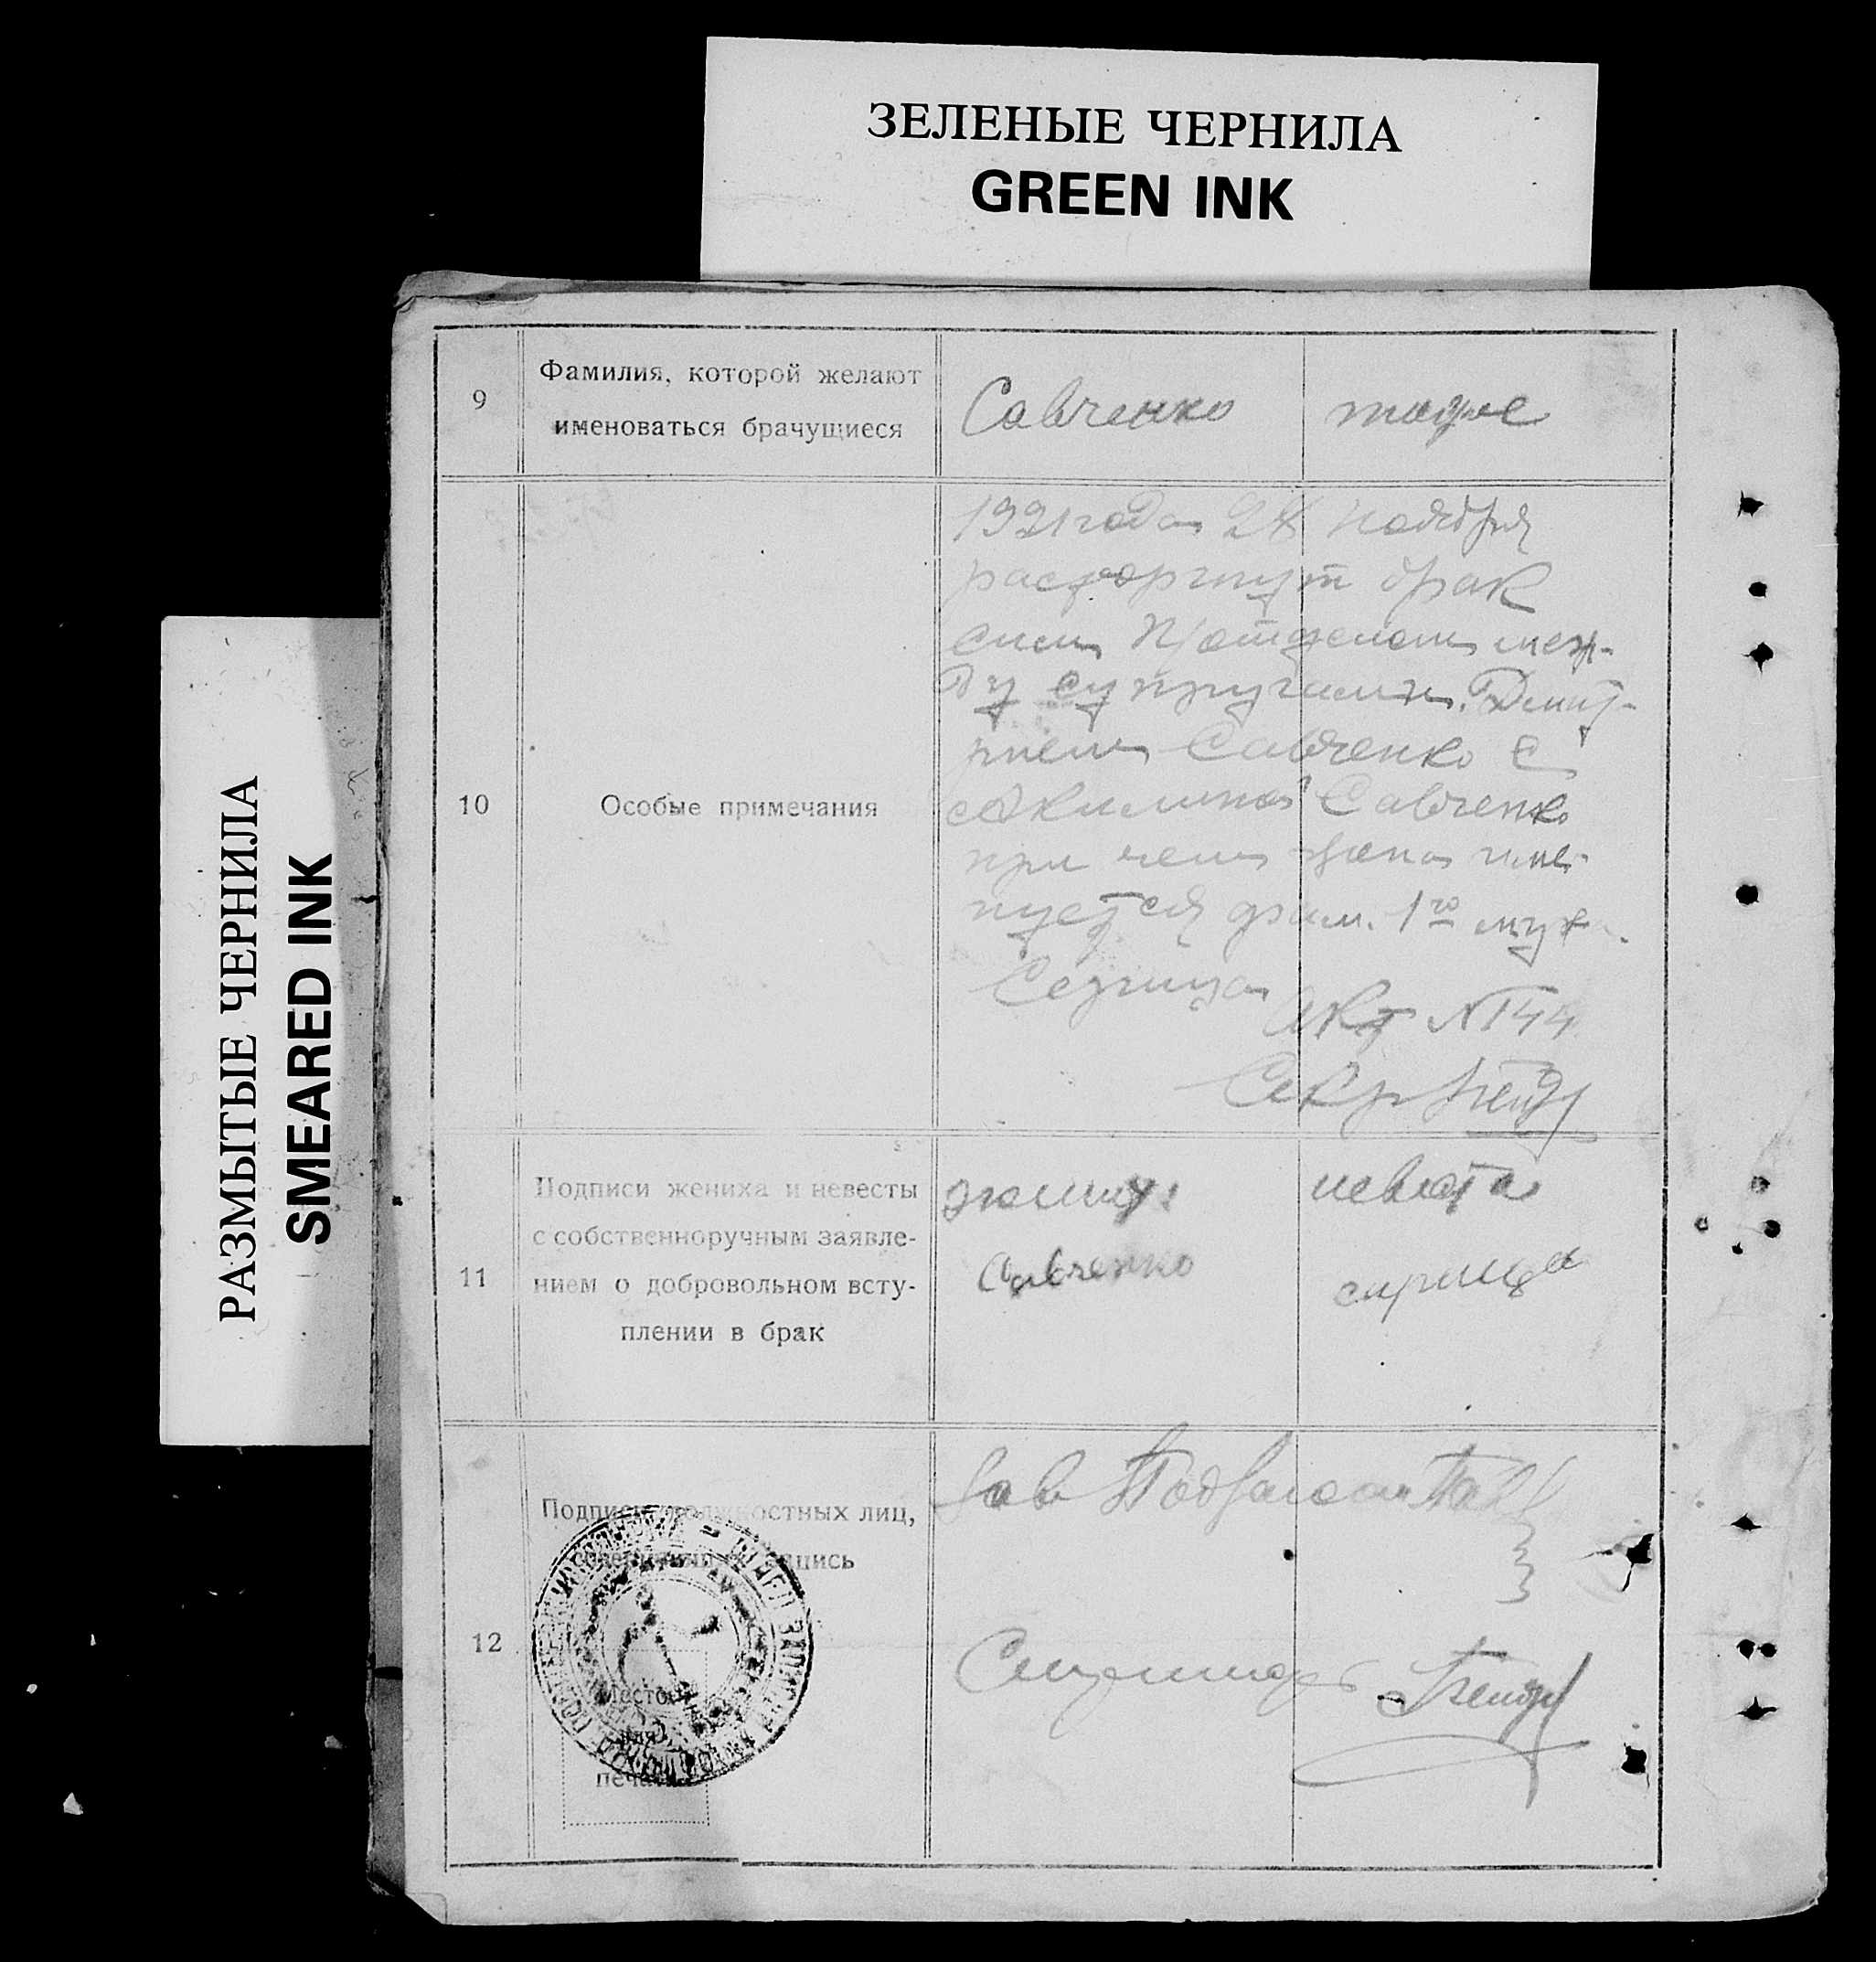 ЗЕЛЕНЫЕ ЧЕРНИЛА
GREEN INK
РАЗМЫТЫЕ ЧЕРНИЛА
SMEARED INK
9
Фамилия, которой желают
именоваться брачущиеся
Савченко
тоже
10
Особые примечания
1921 года 28 ноября
расторгнут брак
сим меж-
ду супругами Дмит-
рием Савченко с
Савченко
при чем жена име-
нуется фам. 1го муж.
Акт N 144
Секр
11
Подписи жениха и невесты
с собственноручным заявле-
нием о добровольном всту-
плении в брак
жених
Савченко
невеста
12
Подписи должностных лиц,
запись
Место
для
печати
Зав Подзагсом
Секретарь